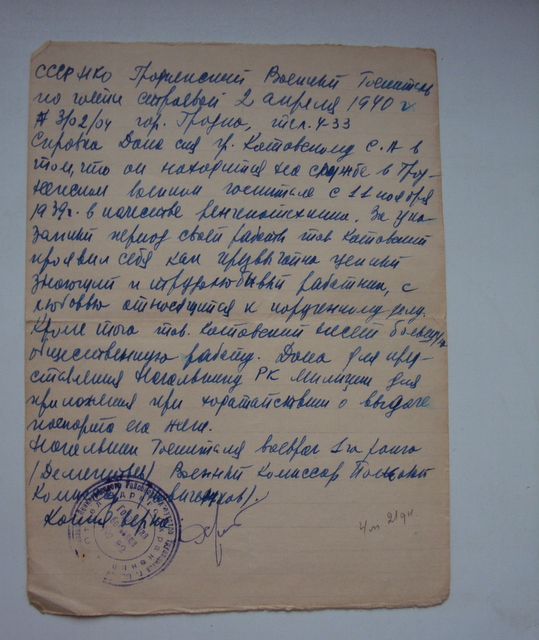 СССР НКО Гродненский Военный Госпиталь
по части строевой 2 апреля 1940 г
# 3/02/04 гор. Гродно, тел. 4-33
Справка Дана сия гр. Котовскому С. А в
том, что он находится на службе в Грод-
ненском военном госпитале с 11 ноября
1939г. в качестве рентгенотехника. За ука-
занный период своей работы тов Котовский
проявил себя как чрезвычайно ценный
знающий и трудолюбивый работник, с
любовью относящийся к порученному делу.
Кроме того тов. Котовский несет большую
общественную работу. Дана для пред-
ставления Начальнику РК Милиции для
приложения при ходатайствии о выдаче
паспорта его жене.
Начальник Госпиталя военврач 1го ранга
Военный Комиссар Полковый
Копия верна